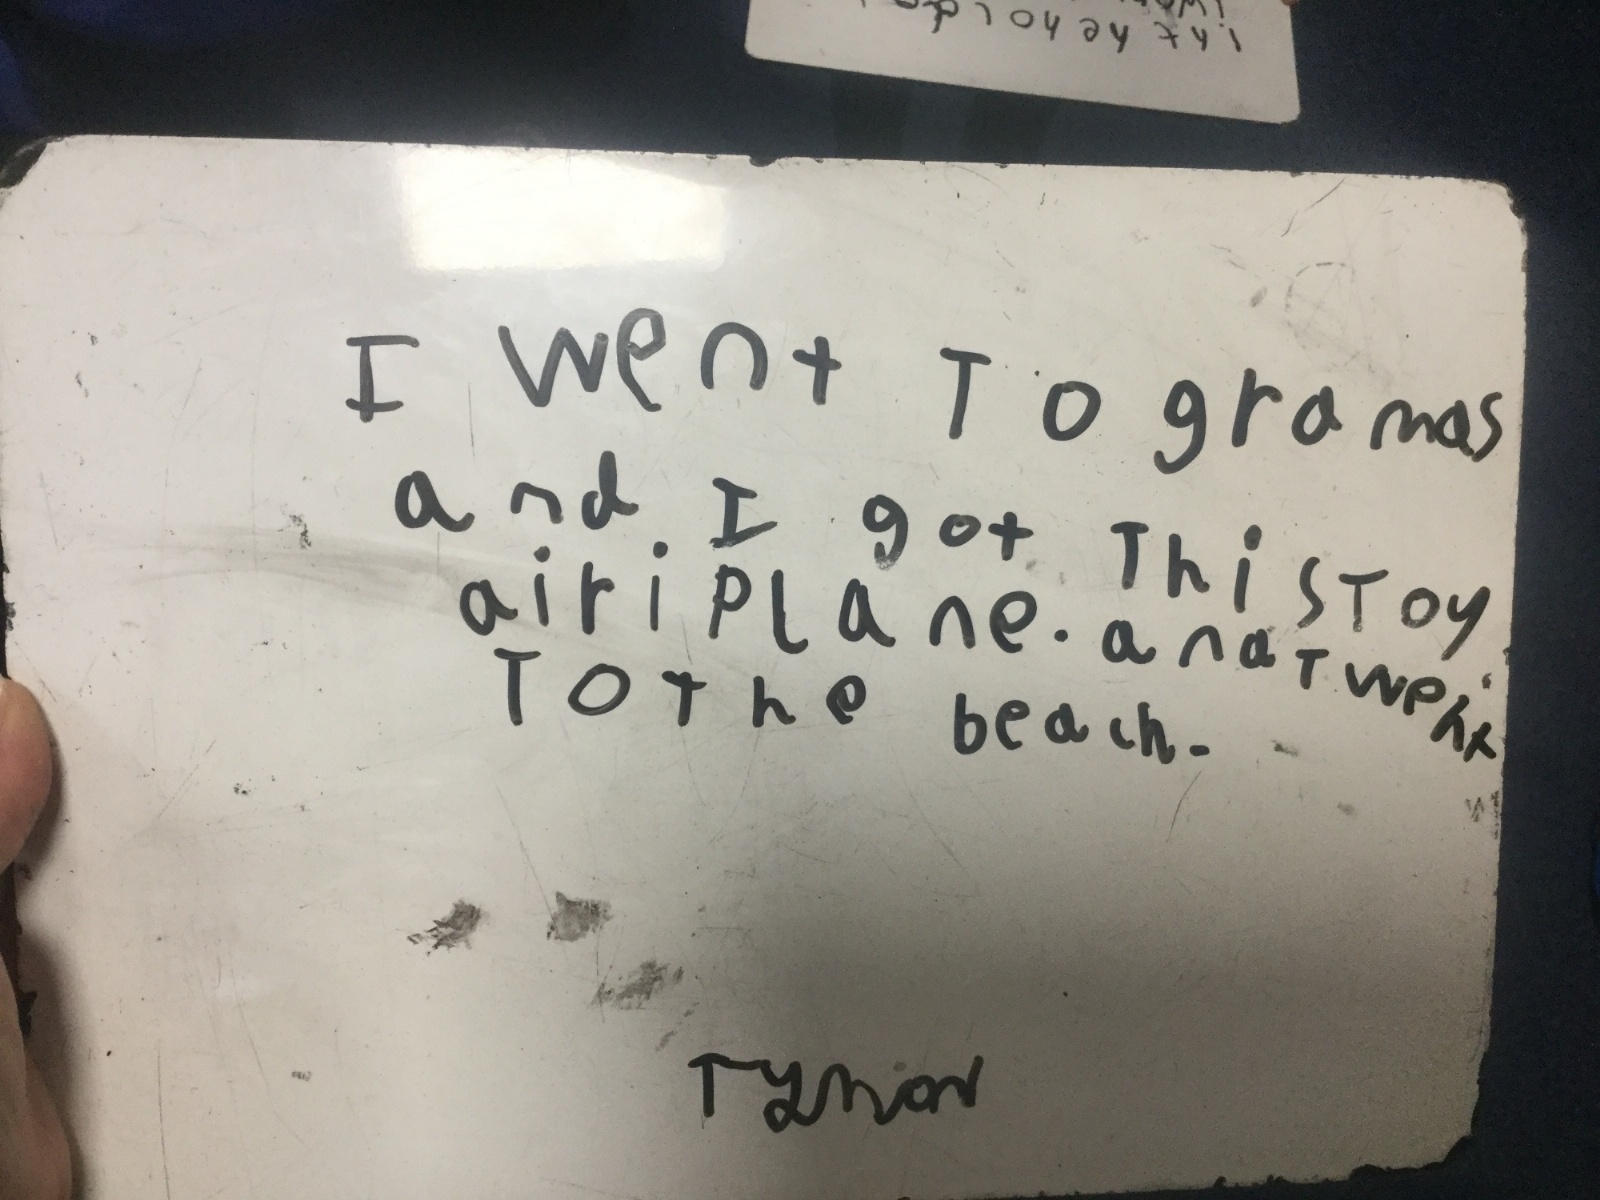 I went To gramas
and I got This Toy
airiplane. and I went
To the beach.